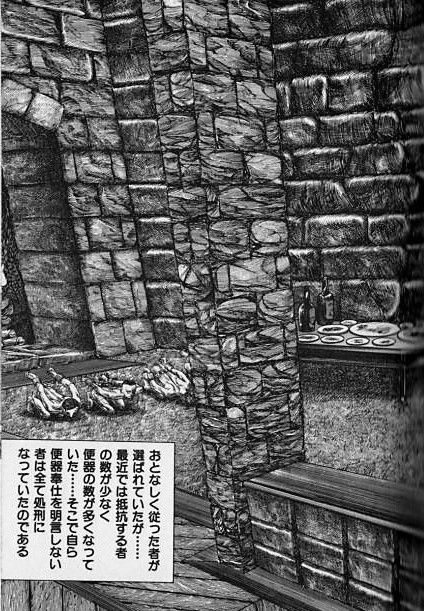 おとなしく従った者が
選ばれていたが……
最近では抵抗する者
の数が少なく
便器の数が多くなって
いた……そこで自ら
便器奉仕を明言しない
者は全て処刑に
なっていたのである